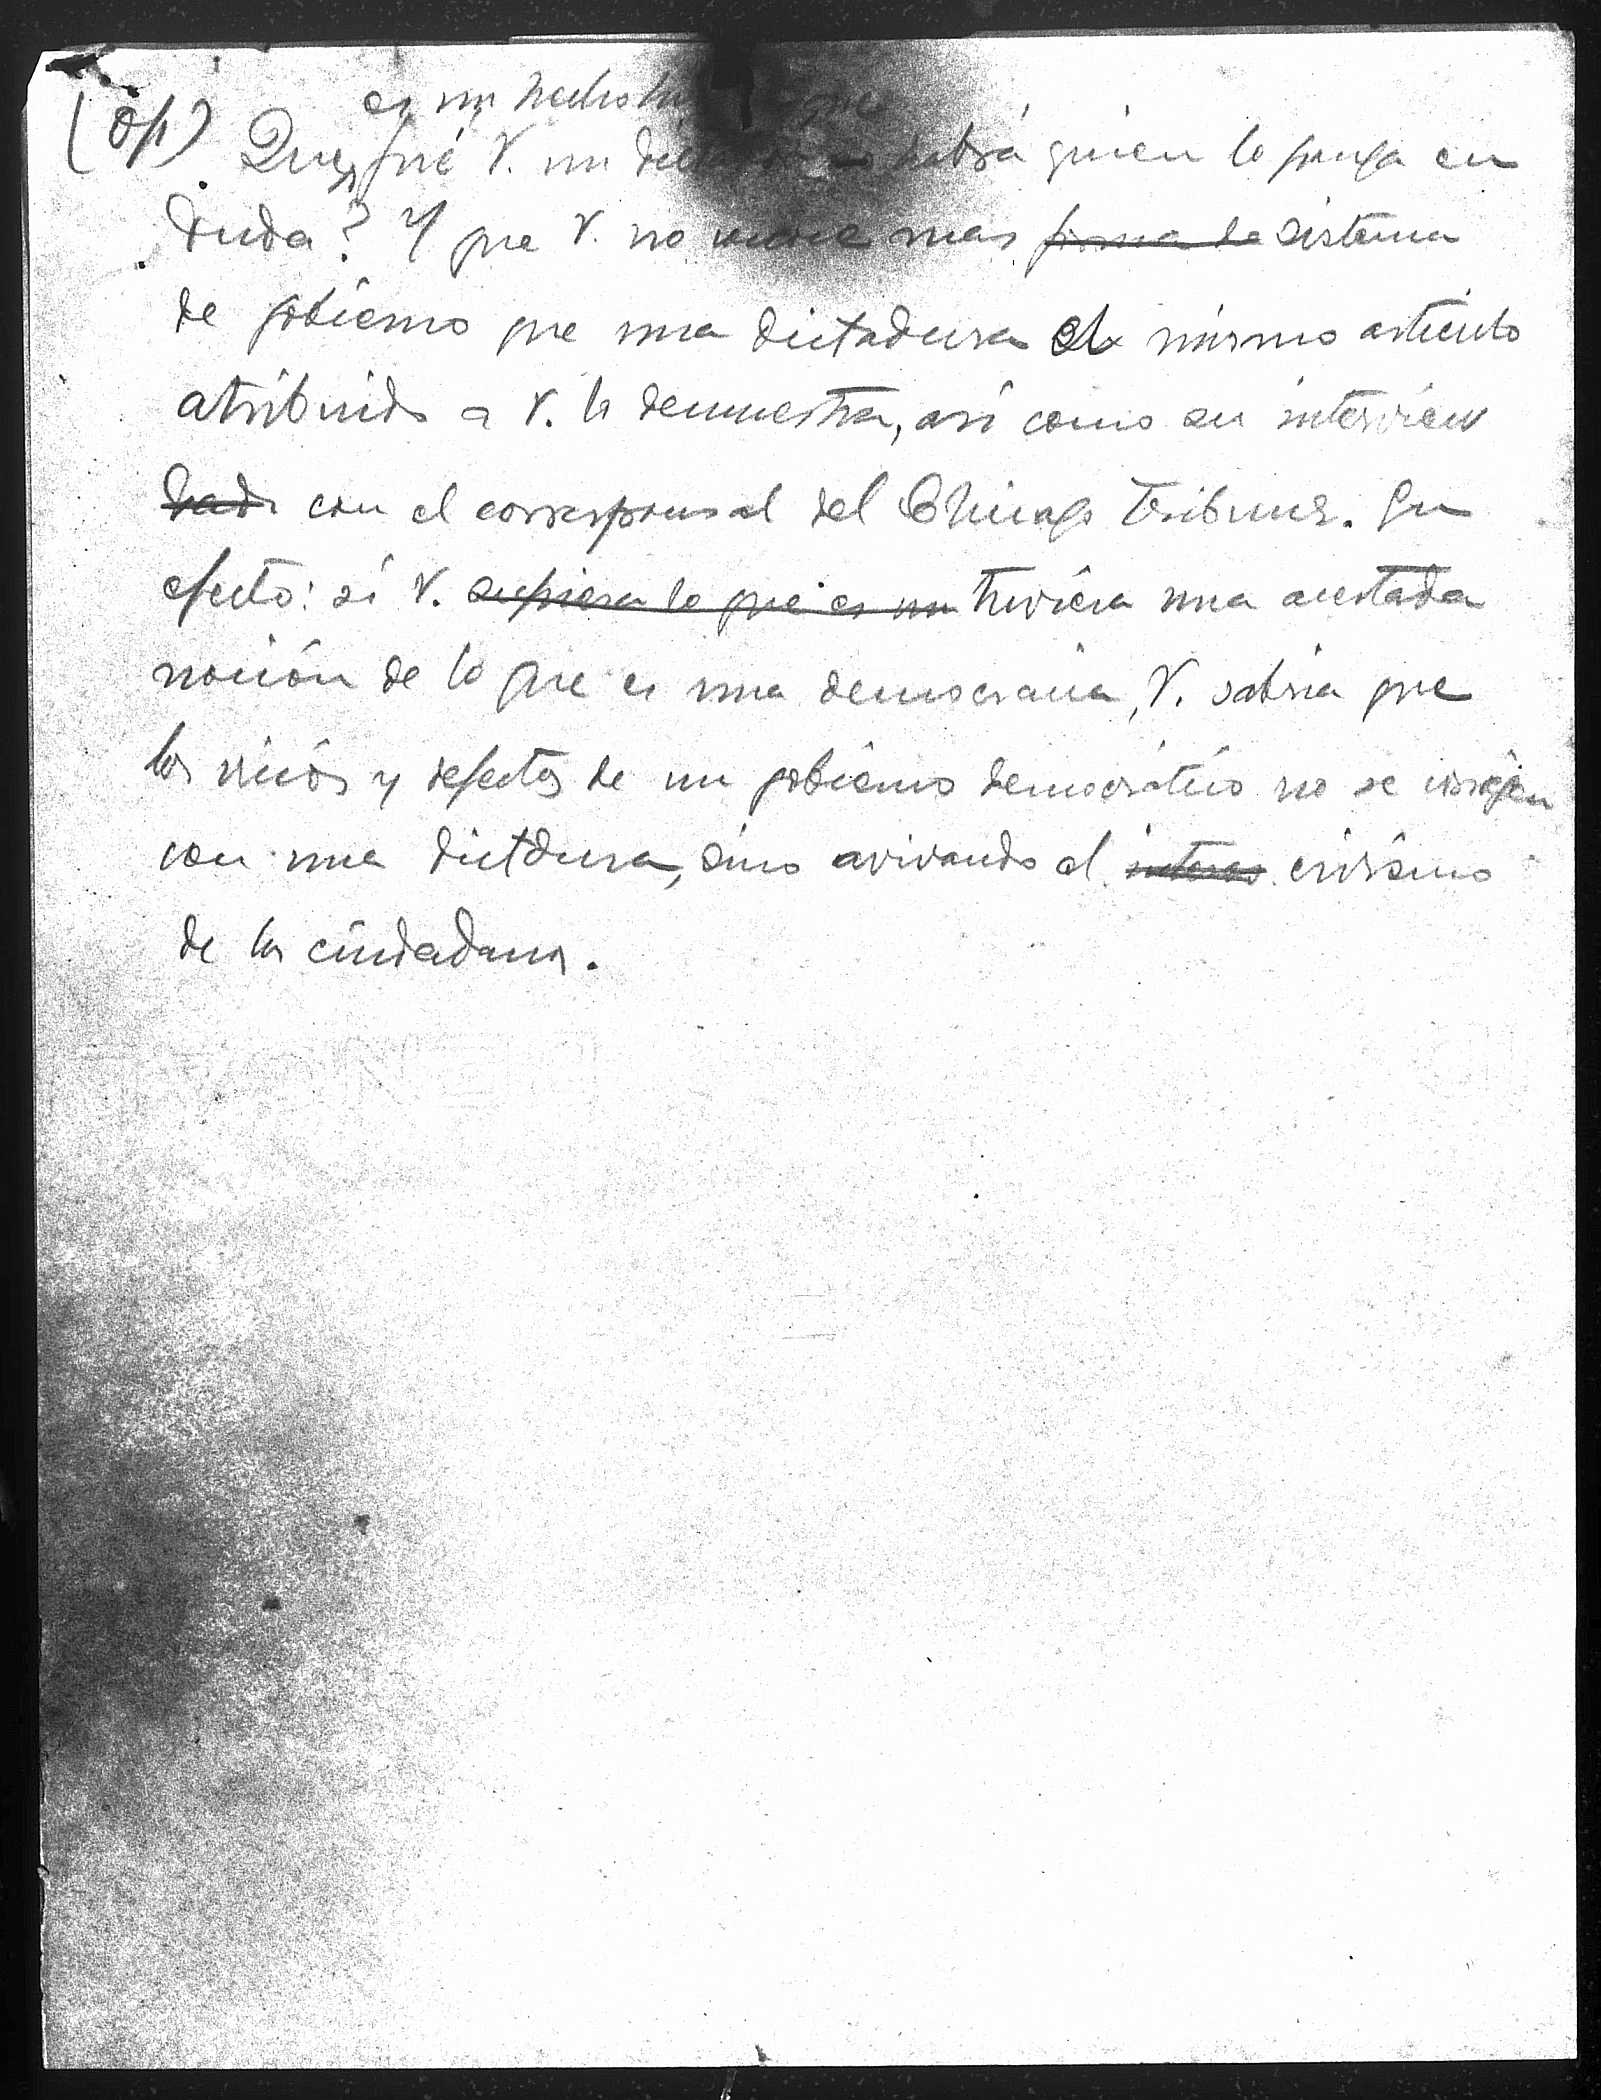 es un hecho que
(Op) Que fué V. un habrá quien lo ponga en
duda? Y que V. no mas forma de sistema
de gobierno que una dictadura el mismo artículo
atribuido a V. lo demuestra, así como su interview
con el corresponsal del Chicago Tribune. En
efecto: si V. supiera lo que es un tuviera una acertada
noción de lo que es una democracia, V. sabria que
los vicios y defectos de un gobierno democrático no se corrigen
con una dictdura, sino avivando el interes civismo
de los ciudadanos.